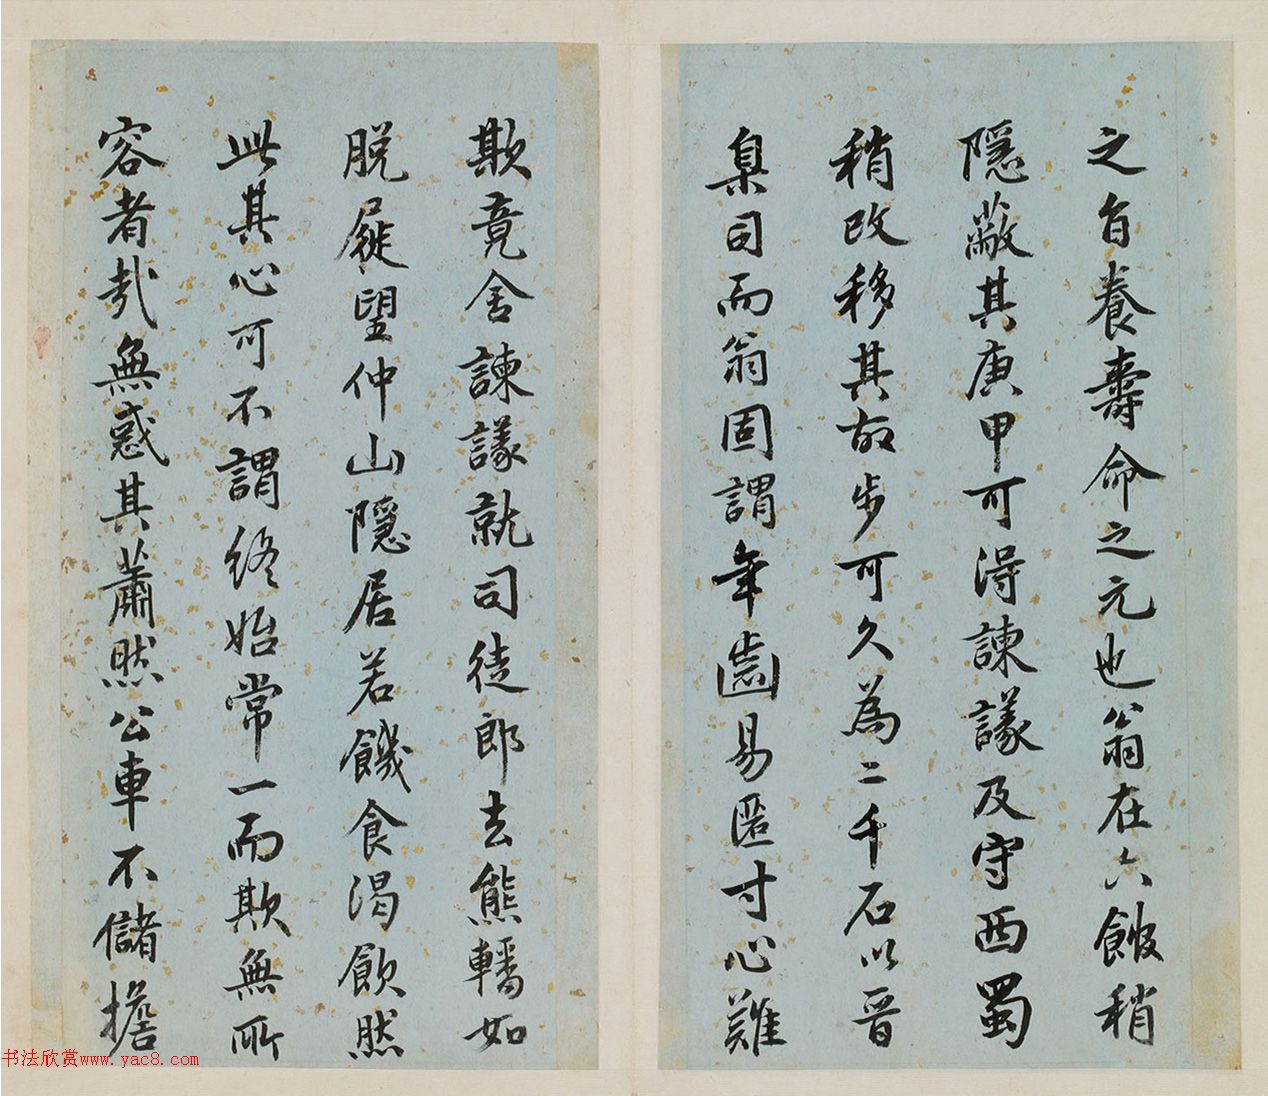 之自養壽命之元也翁在六館稍
隱蔽其庚甲可得諫議及守西蜀
稍改移其故步可久為二千石以晉
臬司而翁固謂年齒易匿寸心難
欺竟舍諫議就司徒郎去熊轓如
脫屣望仲山隱居若饑食渴飲然
此其心可不謂終始常一而欺無所
容者哉無惑其蕭然公車不儲擔
书法欣赏www.yac8.com